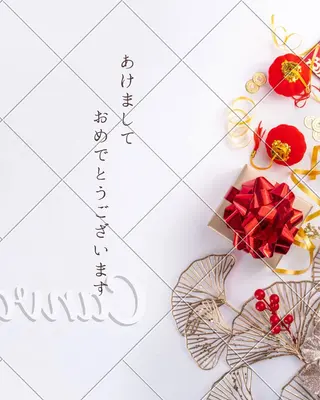 あけまして
おめでとうございます
Canva